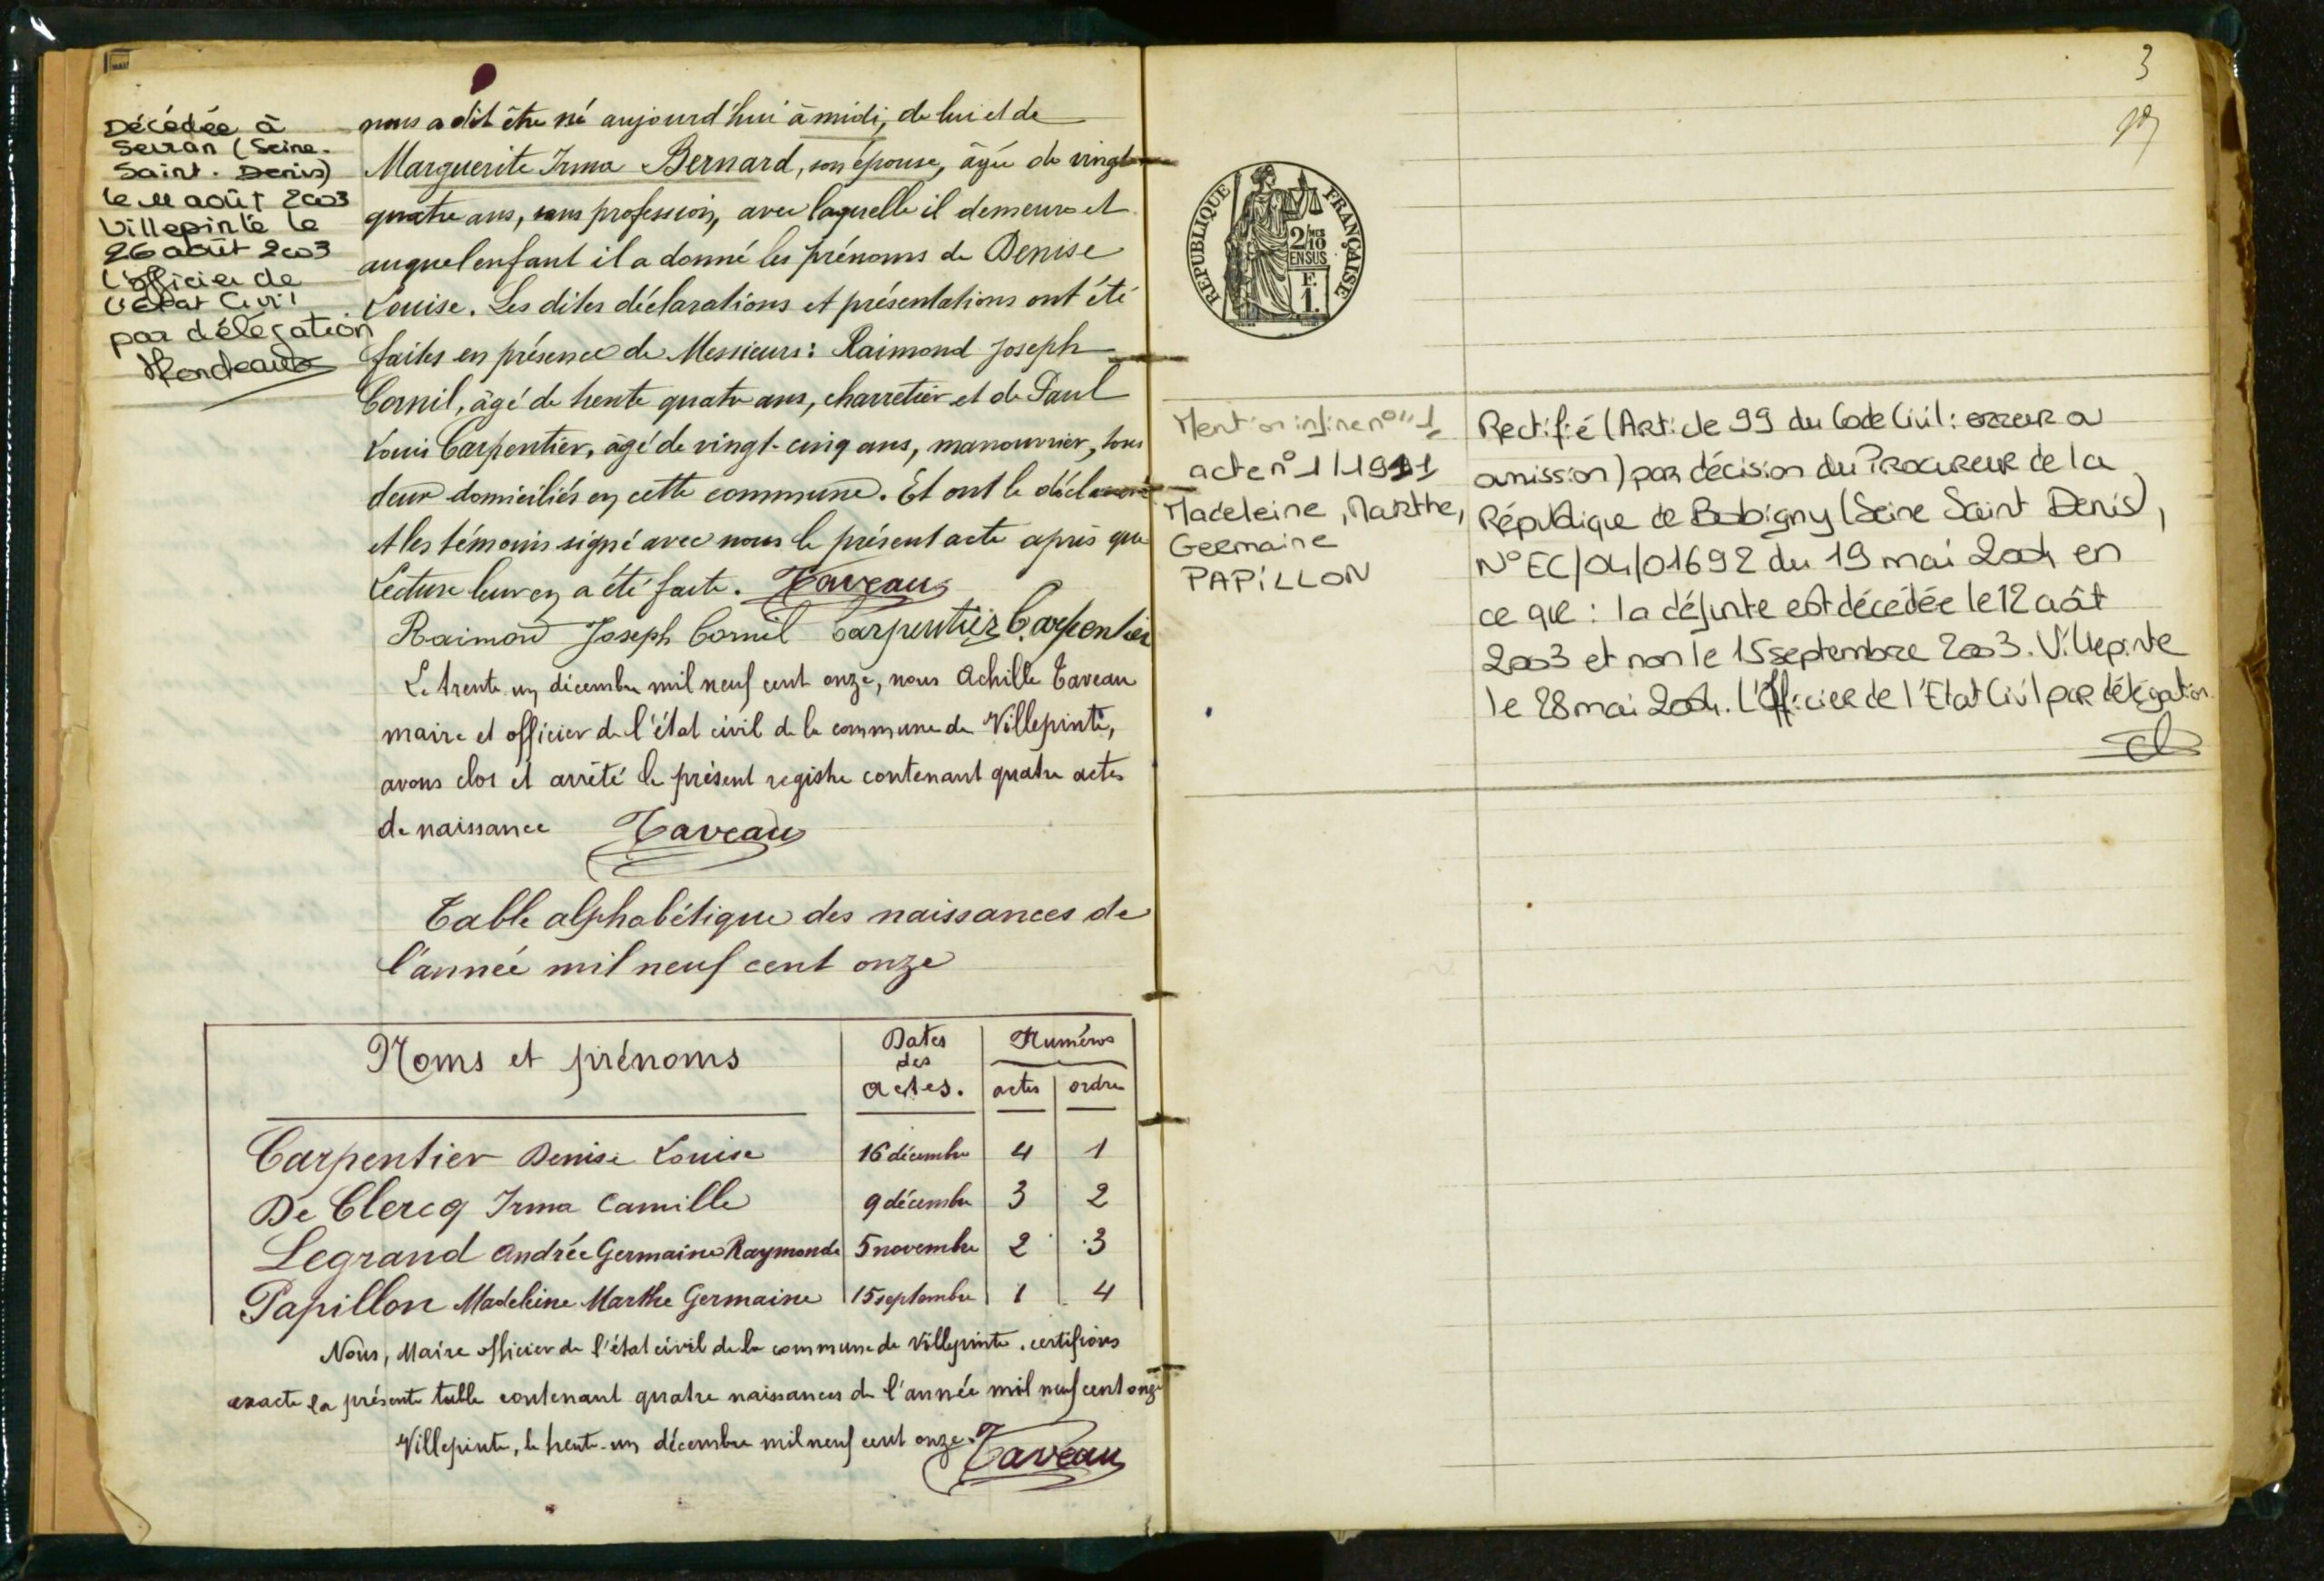 Décédée à
Sevran (Seine-
Saint-Denis)
le 11 août 2003
Villepinte le
26 août 2003
L'officier de
l'état Civil
par délégation
nous a dit être né aujourd'hui à midi, de lui et de
Marguerite Irma Bernard, son épouse, âgée de vingt
quatre ans, sans profession, avec laquelle il demeure et
auquel enfant il a donné les prénoms de Denise
Louise. Les dites déclarations et présentations ont été
faites en présence de Messieurs: Raimond Joseph
Cornil, âgé de trente quatre ans, charretier et de Paul
Louis Carpentier, âgé de vingt-cinq ans, manouvrier, tous
deux domiciliés en cette commune. Et ont le déclarant
et les témoins signé avec nous le présent acte après que
Lecture leur en a été faite. Taveau
Raimond Joseph Cornil Carpentier Carpentier
Le trente un décembre mil neuf cent onze, nous Achille Taveau
maire et officier de l'état civil de la commune de Villepinte,
avons clos et arrêté le présent registre contenant quatre actes
de naissance Taveau
Table alphabétique des naissances de
l'année mil neuf cent onze
Noms et prénoms
Dates
des
actes.
Numéros
actes ordre
Carpentier Denise Louise 16 décembre 4 1
De Clercq Irma Camille 9 décembre 3 2
Legrand Andrée Germaine Raymonde 5 novembre 2 3
Papillon Madeleine Marthe Germaine 15 septembre 1 4
Nous, Maire officier de l'état civil de la commune de Villepinte, certifions
exacte la présente table contenant quatre naissances de l'année mil neuf cent onze
Villepinte, le trente-un décembre mil neuf cent onze.
Taveau
3
REPUBLIQUE FRANÇAISE
2/10
EN SUS
F.
1.
Mention infine n° 1
acte n° 1/1911
Madeleine, Marthe,
Germaine
PAPILLON
Rectifié (Article 99 du Code Civil: erreur ou
omission) par décision du Procureur de la
République de Bobigny (Seine Saint Denis),
N° EC/04/01692 du 19 mai 2004 en
ce que: la défunte est décédée le 12 août
2003 et non le 15 septembre 2003. Villepinte
le 28 mai 2004. L'Officier de l'Etat Civil par délégation.